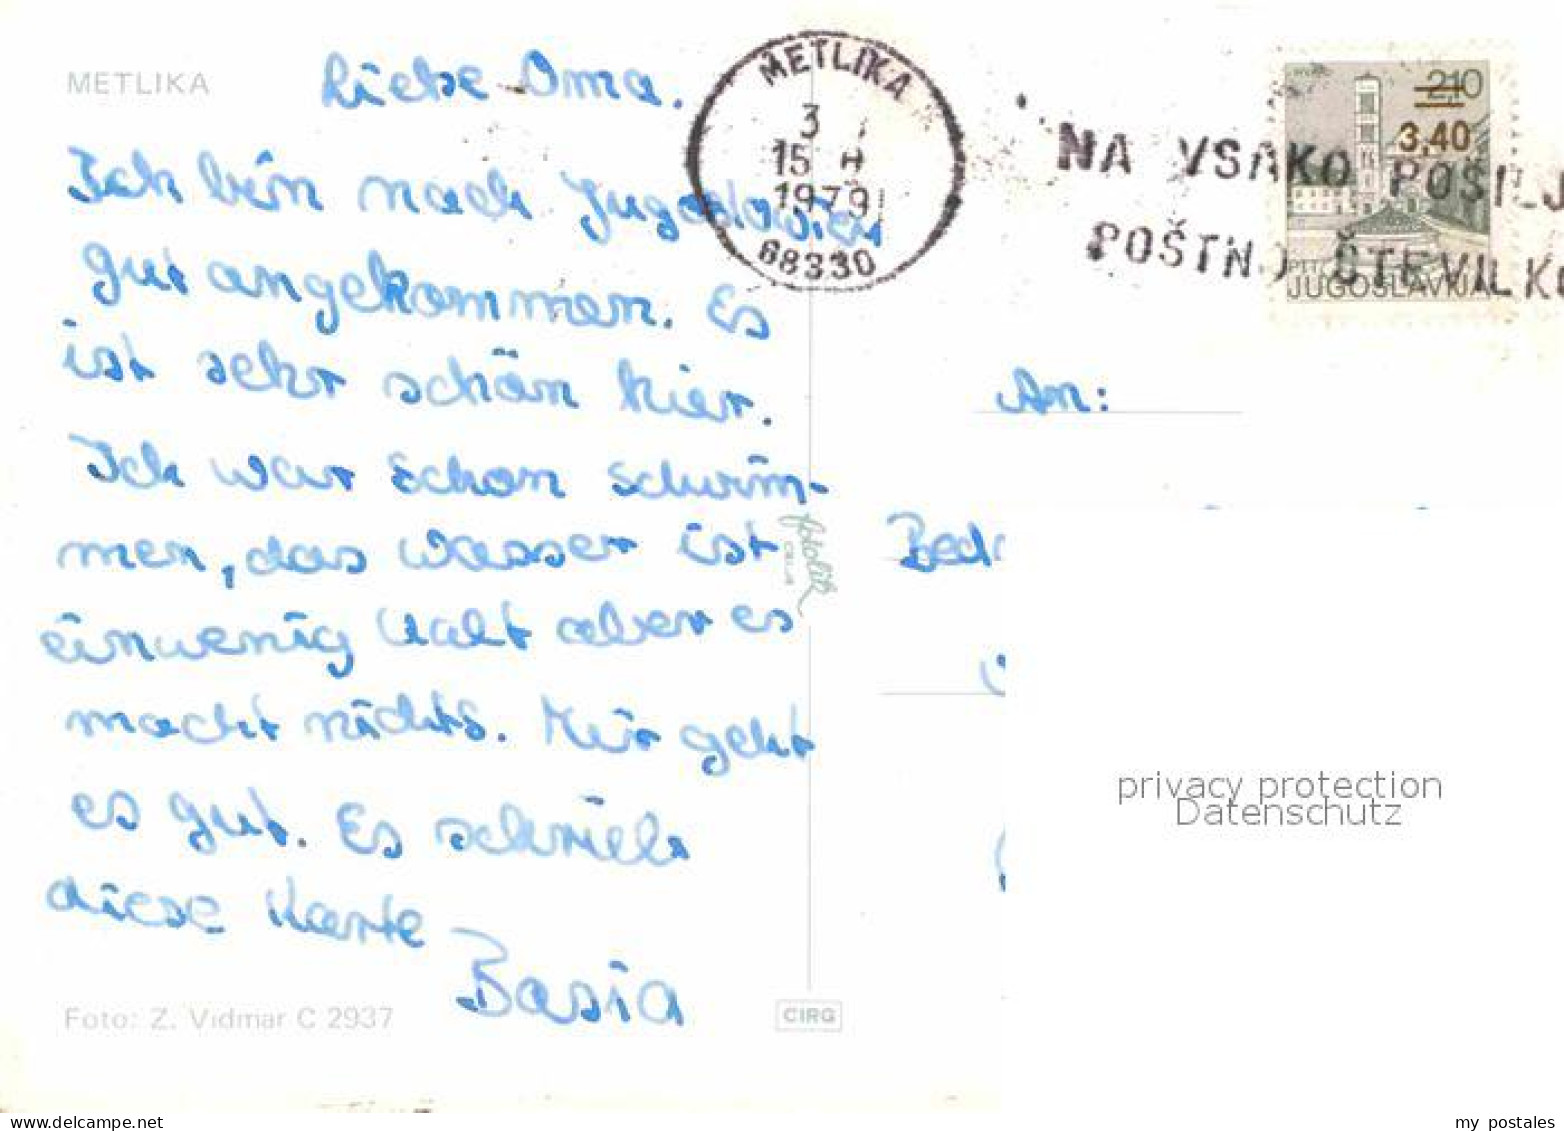 METLIKA
Liebe Oma.
Ich bin nach Jugoslawien
gut angekommen. Es
ist sehr schön hier.
Ich war schon schwim-
men, das wasser ist
einwenig kalt aber es
macht nichts. Mir geht
es gut. Es schrieb
diese Karte
Basia
Foto: Z. Vidmar C 2937
fotolik
CELJE
CIRG
METLIKA
3
15 H
1979
68330
NA VSAKO POŠILJ
POŠTNO ŠTEVILKO
2,10
3,40
JUGOSLAVIJA
An:
privacy protection
Datenschutz
my postales